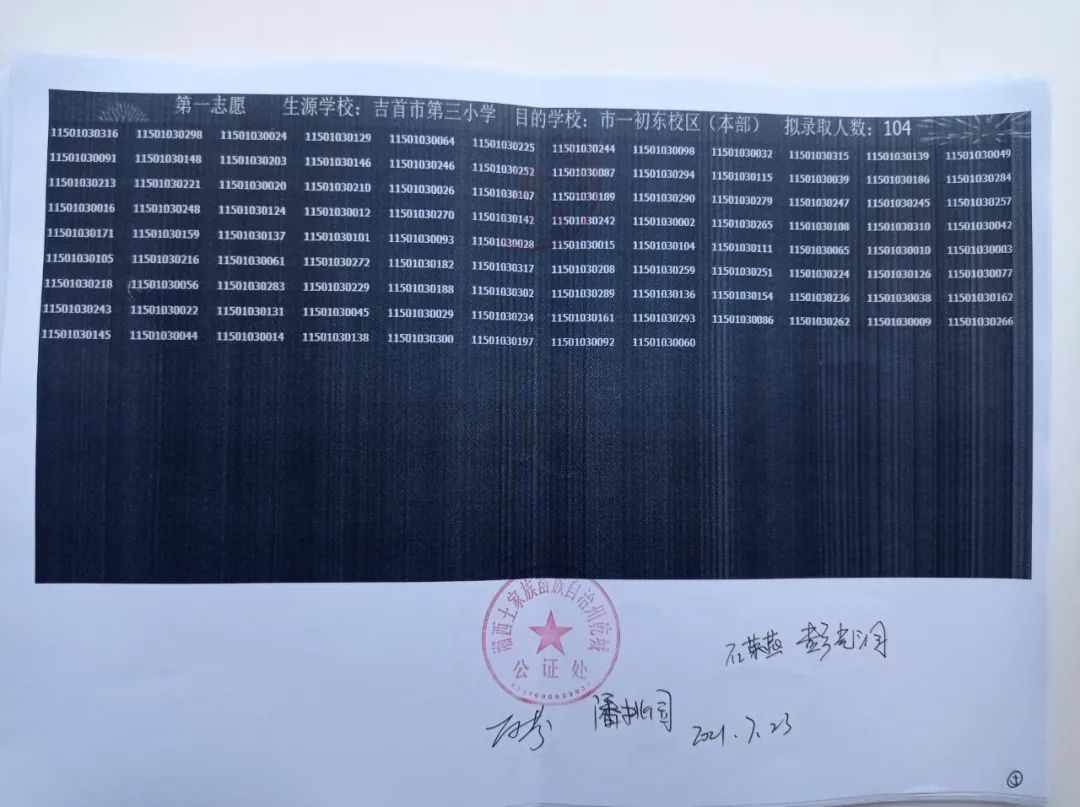 第一志愿 生源学校：吉首市第三小学 目的学校：市一初东校区（本部） 拟录取人数：104
11501030316 11501030298 11501030024 11501030129 11501030064 11501030225 11501030244 11501030098 11501030032 11501030315 11501030139 11501030049
11501030091 11501030148 11501030203 11501030146 11501030246 11501030252 11501030087 11501030294 11501030115 11501030039 11501030186 11501030284
11501030213 11501030221 11501030020 11501030210 11501030026 11501030107 11501030189 11501030290 11501030279 11501030247 11501030245 11501030257
11501030016 11501030248 11501030124 11501030012 11501030270 11501030142 11501030242 11501030002 11501030265 11501030108 11501030310 11501030042
11501030171 11501030159 11501030137 11501030101 11501030093 11501030028 11501030015 11501030104 11501030111 11501030065 11501030010 11501030003
11501030105 11501030216 11501030061 11501030272 11501030182 11501030317 11501030208 11501030259 11501030251 11501030224 11501030126 11501030077
11501030218 11501030056 11501030283 11501030229 11501030188 11501030302 11501030289 11501030136 11501030154 11501030236 11501030038 11501030162
11501030243 11501030022 11501030131 11501030045 11501030029 11501030234 11501030161 11501030293 11501030086 11501030262 11501030009 11501030266
11501030145 11501030044 11501030014 11501030138 11501030300 11501030197 11501030092 11501030060
湘西土家族苗族自治州乾城
公证处
2021.7.23
④